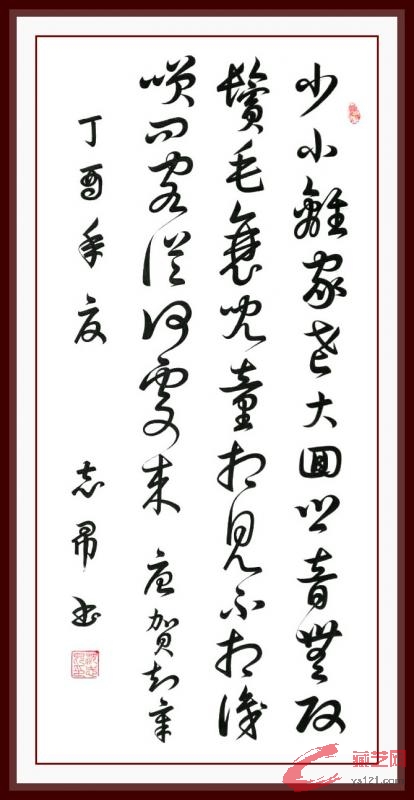 少小離家老大回鄉音無改
鬢毛衰兒童相見不相識
咲問客從何處來 唐賀知章
丁酉年夏
志 書
藏艺网
ya121.com